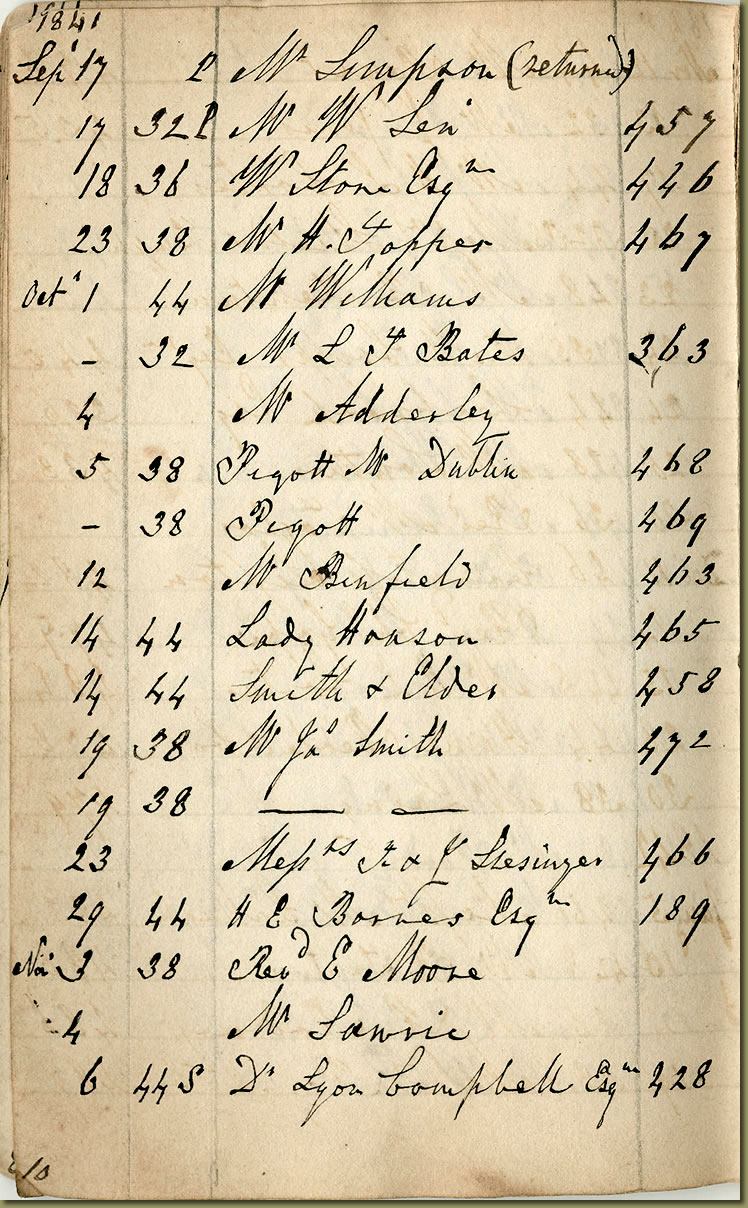 1841
Sepr 17 P Mr Simpson (returned)
17 32 P Mr W Len 457
18 36 W Stone Esqre 446
23 38 Mr H. Topper 467
Octr 1 44 Mr Williams
– 32 Mr L F Bates 363
4 Mr Adderley
5 38 Pigott Mr Dublin 468
– 38 Pigott 469
12 Mr Binfield 463
14 44 Lady Honson 465
14 44 Smith & Elder 458
19 38 Mr Jas Smith 472
19 38 — —
23 Messrs T & J 466
29 44 H E Barnes Esqre 189
Novr 3 38 Revd E Moore
4 Mr Lawrie
6 44 S Dr Lyon Campbell Esqre 428
10